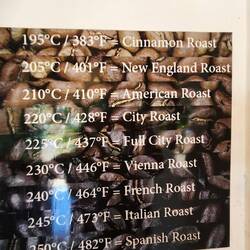 195°C / 383°F = Cinnamon Roast
205°C / 401°F = New England Roast
210°C / 410°F = American Roast
220°C / 428°F = City Roast
225°C / 437°F = Full City Roast
230°C / 446°F = Vienna Roast
240°C / 464°F = French Roast
245°C / 473°F = Italian Roast
250°C / 482°F = Spanish Roast